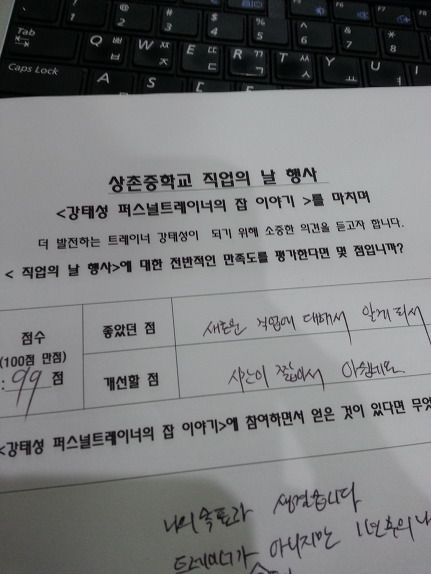 ! 1 @ 2 # 3 $ 4 % 5 ^ 6 & 7 * 8
Tab Q ㅃ ㅂ W ㅉ ㅈ E ㄸ ㄷ R ㄲ ㄱ T ㅆ ㅅ Y ㅛ U ㅕ
Caps Lock A S
상촌중학교 직업의 날 행사
<강태성 퍼스널트레이너의 잡 이야기 >를 마치며
더 발전하는 트레이너 강태성이 되기 위해 소중한 의견을 듣고자 합니다.
< 직업의 날 행사>에 대한 전반적인 만족도를 평가한다면 몇 점입니까?
점수
(100점 만점)
: 99 점
좋았던 점
새로운 직업에 대해서 알게 되서
개선할 점
시간이 짧아서 아쉽네요
<강태성 퍼스널트레이너의 잡 이야기>에 참여하면서 얻은 것이 있다면 무엇
나의 목표가 생겼습니다
트레이너가 아니지만 11년후의 나